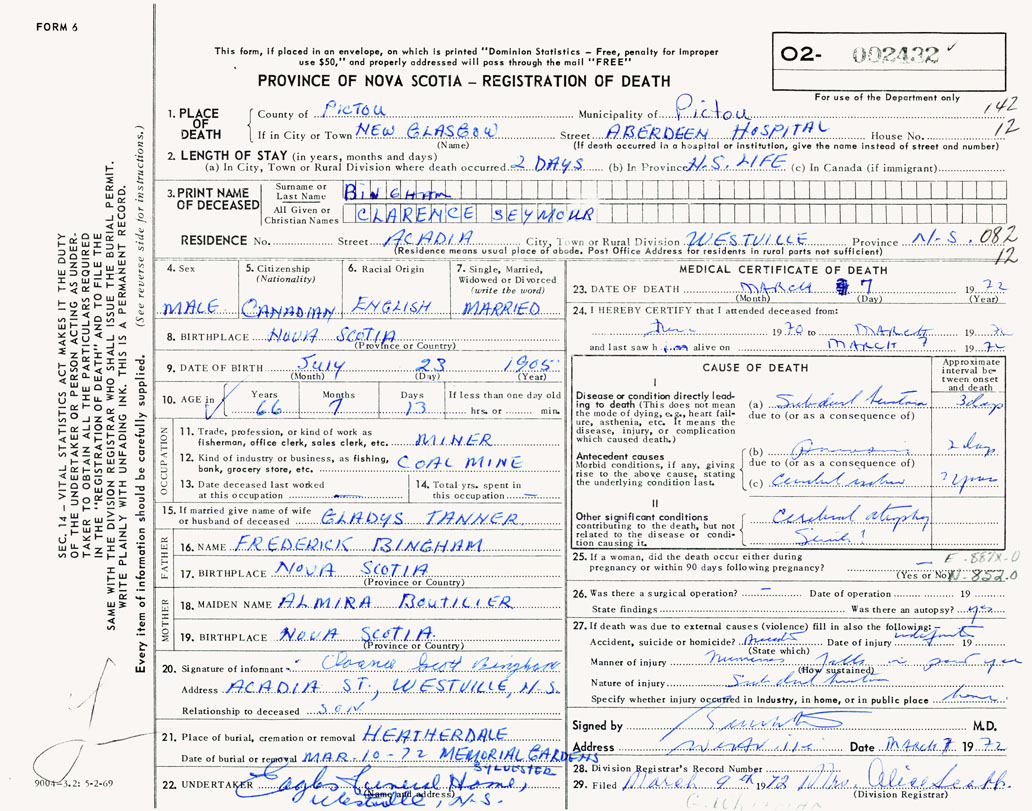 FORM 6
This form, if placed in an envelope, on which is printed "Dominion Statistics – Free, penalty for improper
use $50," and properly addressed will pass through the mail "FREE"
O2- 002432
PROVINCE OF NOVA SCOTIA – REGISTRATION OF DEATH
For use of the Department only
142
12
1. PLACE OF DEATH
County of Pictou Municipality of Pictou
If in City or Town NEW GLASGOW Street ABERDEEN HOSPITAL House No.
(Name) (If death occurred in a hospital or institution, give the name instead of street and number)
2. LENGTH OF STAY (in years, months and days)
(a) In City, Town or Rural Division where death occurred 2 DAYS (b) In Province N.S. LIFE (c) In Canada (if immigrant)
3. PRINT NAME OF DECEASED
Surname or Last Name BINGHAM
All Given or Christian Names CLARENCE SEYMOUR
RESIDENCE No. Street ACADIA City, Town or Rural Division WESTVILLE Province N.S. 082
(Residence means usual place of abode. Post Office Address for residents in rural parts not sufficient) 12
4. Sex
MALE
5. Citizenship (Nationality)
CANADIAN
6. Racial Origin
ENGLISH
7. Single, Married, Widowed or Divorced (write the word)
MARRIED
8. BIRTHPLACE NOVA SCOTIA
(Province or Country)
9. DATE OF BIRTH July 23 1905
(Month) (Day) (Year)
10. AGE in Years Months Days If less than one day old
66 7 13 hrs. or min.
OCCUPATION
11. Trade, profession, or kind of work as
fisherman, office clerk, sales clerk, etc. MINER
12. Kind of industry or business, as fishing,
bank, grocery store, etc. COAL MINE
13. Date deceased last worked
at this occupation
14. Total yrs. spent in
this occupation
15. If married give name of wife
or husband of deceased GLADYS TANNER
FATHER
16. NAME FREDERICK BINGHAM
17. BIRTHPLACE NOVA SCOTIA
(Province or Country)
MOTHER
18. MAIDEN NAME ALMIRA BOUTILIER
19. BIRTHPLACE NOVA SCOTIA
(Province or Country)
20. Signature of informant Bingham
Address ACADIA ST., WESTVILLE, N.S.
Relationship to deceased SON
21. Place of burial, cremation or removal HEATHERDALE
Date of burial or removal MAR. 10-72 MEMORIAL GARDENS
SYLVESTER
22. UNDERTAKER Eagles Funeral Home,
(Name and address)
Westville, N.S.
MEDICAL CERTIFICATE OF DEATH
23. DATE OF DEATH MARCH 7 1972
(Month) (Day) (Year)
24. I HEREBY CERTIFY that I attended deceased from:
1970 to MARCH 1972
and last saw him alive on MARCH 7 1972
CAUSE OF DEATH
Approximate interval between onset and death
I
Disease or condition directly leading to death (This does not mean
the mode of dying, e.g., heart failure, asthenia, etc. It means the
disease, injury, or complication
which caused death.)
(a) 3 days
due to (or as a consequence of)
Antecedent causes
Morbid conditions, if any, giving
rise to the above cause, stating
the underlying condition last.
(b) 2 days
due to (or as a consequence of)
(c) Cerebral
II
Other significant conditions
contributing to the death, but not
related to the disease or condition causing it.
Cerebral atrophy
25. If a woman, did the death occur either during
pregnancy or within 90 days following pregnancy?
(Yes or No) N-852.0
26. Was there a surgical operation? – Date of operation 19
State findings Was there an autopsy? yes
27. If death was due to external causes (violence) fill in also the following:
Accident, suicide or homicide? Date of injury 19
(State which)
Manner of injury Numerous falls in past year
(How sustained)
Nature of injury
Specify whether injury occurred in industry, in home, or in public place home
Signed by M.D.
Address Westville Date MARCH 7 1972
28. Division Registrar's Record Number
29. Filed March 9th 1972 Mrs.
(Division Registrar)
SEC. 14 – VITAL STATISTICS ACT MAKES IT THE DUTY
OF THE UNDERTAKER OR PERSON ACTING AS UNDERTAKER
TO OBTAIN ALL THE PARTICULARS REQUIRED
IN THE "REGISTRATION OF DEATH" AND TO FILE THE
SAME WITH THE DIVISION REGISTRAR WHO SHALL ISSUE THE BURIAL PERMIT.
WRITE PLAINLY WITH UNFADING INK. THIS IS A PERMANENT RECORD.
Every item of information should be carefully supplied. (See reverse side for instructions.)
9004-3.2: 5-2-69